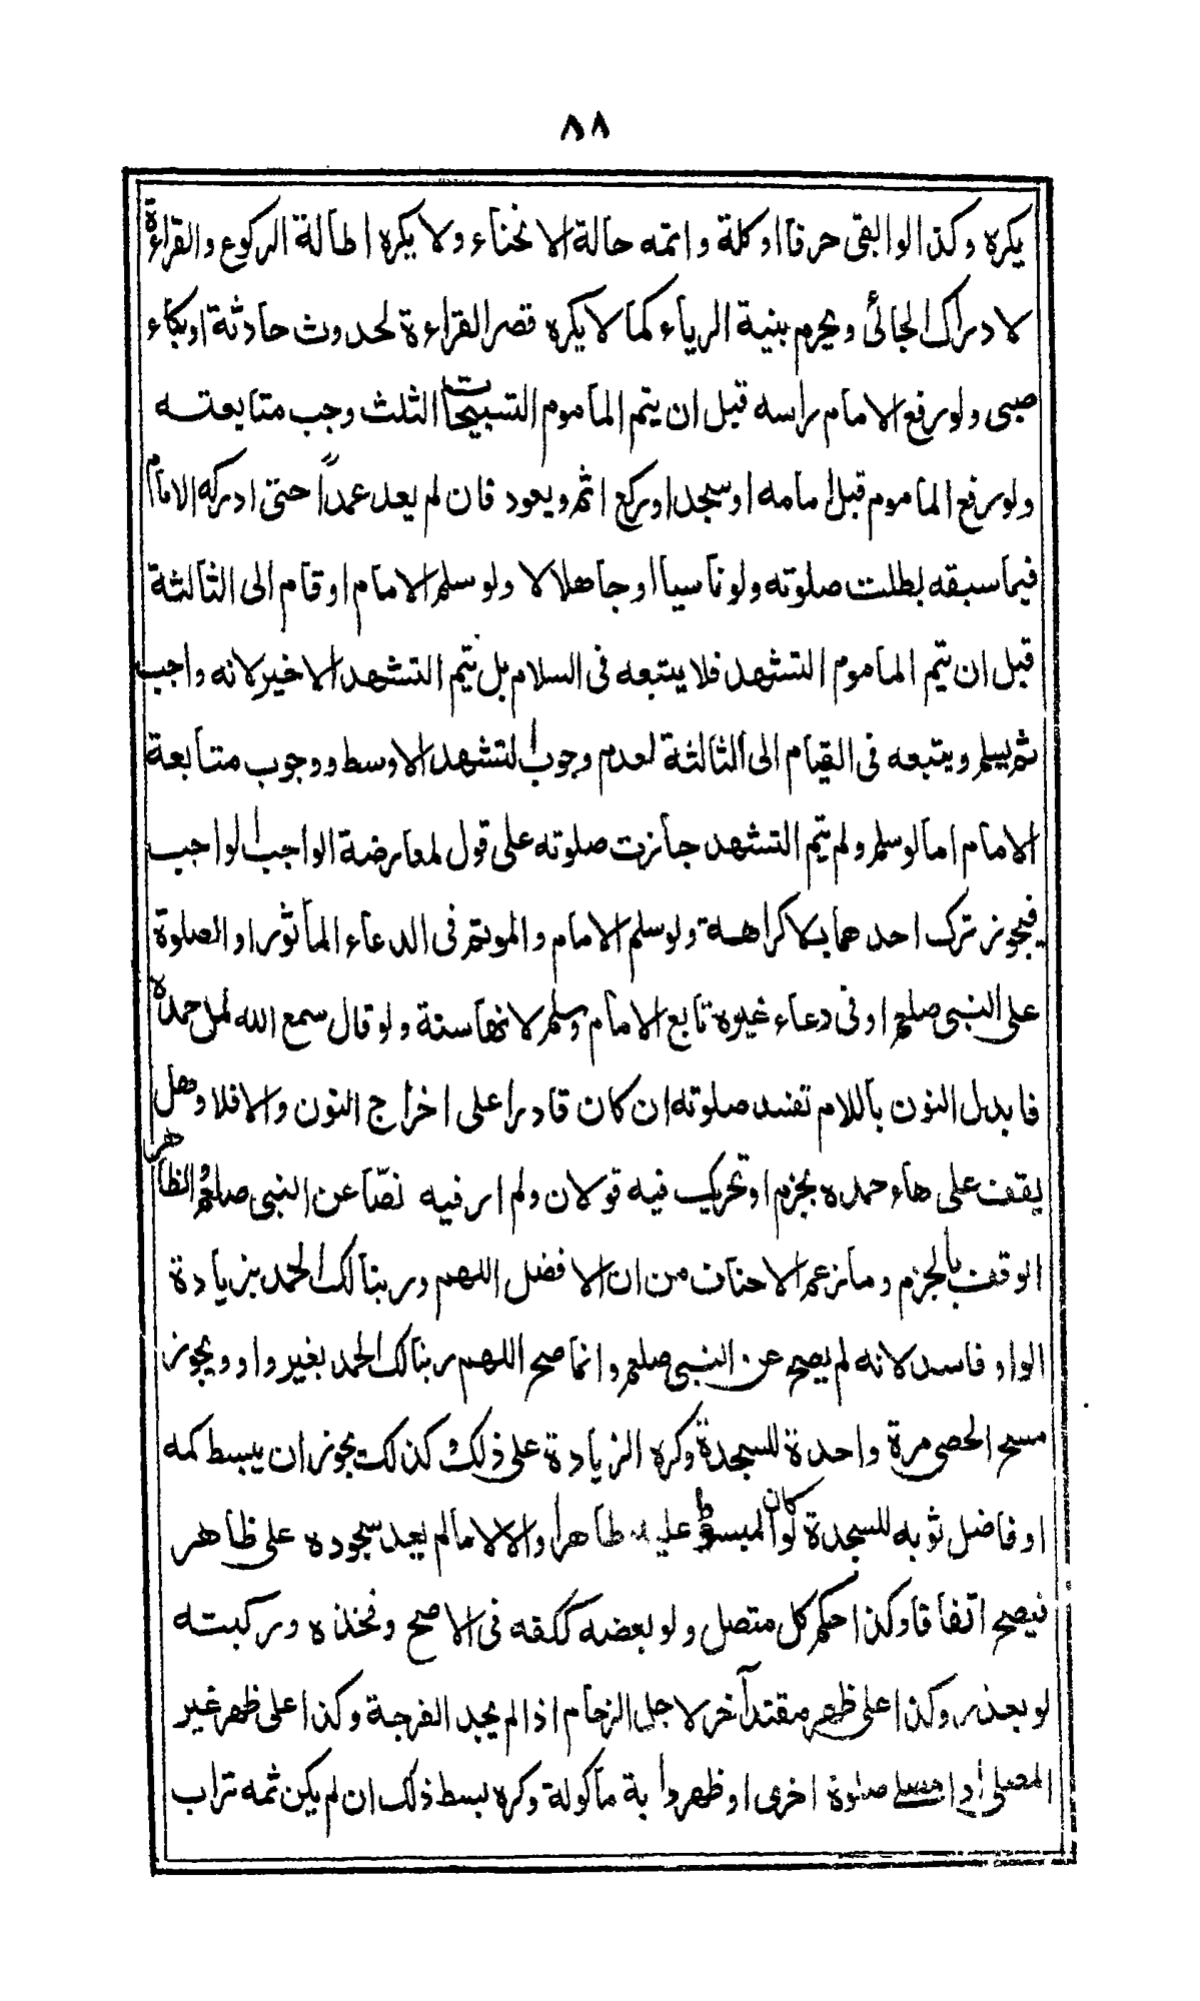 ٨٨
يكره وكذا لو ابقى حرفا او كلمة واتمه حالة الانحناء ولا يكره اطالة الركوع والقراءة
لادراك الجائي ويحرم بنية الرياء كما لا يكره قصر القراءة لحدوث حادثة او بكاء
صبى ولو رفع الامام راسه قبل ان يتم الماموم التسبيحات الثلث وجب متابعته
ولو رفع الماموم قبل امامه او سجد او ركع اثم ويعود فان لم يعد عمداً حتى ادركه الامام
فيما سبقه بطلت صلوته ولو ناسيا او جاهلا لا ولو سلم الامام او قام الى الثالثة
قبل ان يتم الماموم التشهد فلا يتبعه فى السلام بل يتم التشهد الاخير لانه واجب
ثم يسلم ويتبعه فى القيام الى الثالثة لعدم وجوب التشهد الاوسط ووجوب متابعة
الامام اما لو سلم ولم يتم التشهد جازت صلوته على قول لمعارضة الواجب الواجب
فيجوز ترك احدهما بلا كراهة ولو سلم الامام والموتم فى الدعاء الماثور او الصلوة
على النبى صلعم او فى دعاء غيره تابع الامام وسلم لانها سنة ولو قال سمع الله لمل حمده
فابدل النون باللام تفسد صلوته ان كان قادرا على اخراج النون والافلا وهل
يقف على هاء حمده بجزم او تحريك فيه قولان ولم ار فيه نصّا عن النبى صلعم الظاهر
الوقف بالجزم وما زعم الاحناف من ان الافضل اللهم وربنا لك الحمد بزيادة
الواو فاسد لانه لم يصح عن النبى صلعم وانما صح اللهم ربنا لك الحمد بغير واو ويجوز
مسح الحصى مرة واحدة للسجدة وكره الزيادة على ذلك وكذلك يجوز ان يبسط كمه
او فاضل ثوبه للسجدة لو كان المبسوط عليه طاهرا والا لا مالم يعد سجوده على ظاهر
فيصح اتفاقا وكذا حكم كل متصل ولو بعضه ككفه فى الاصح وفخذه وركبته
لو بعذر وكذا على ظهر مقتد آخر لاجل الزحام اذا لم يجد الفرجة وكذا على ظهر غير
المصلى او صلوة اخرى او ظهر دابة ماكولة وكره بسط ذلك ان لم يكن ثمه تراب